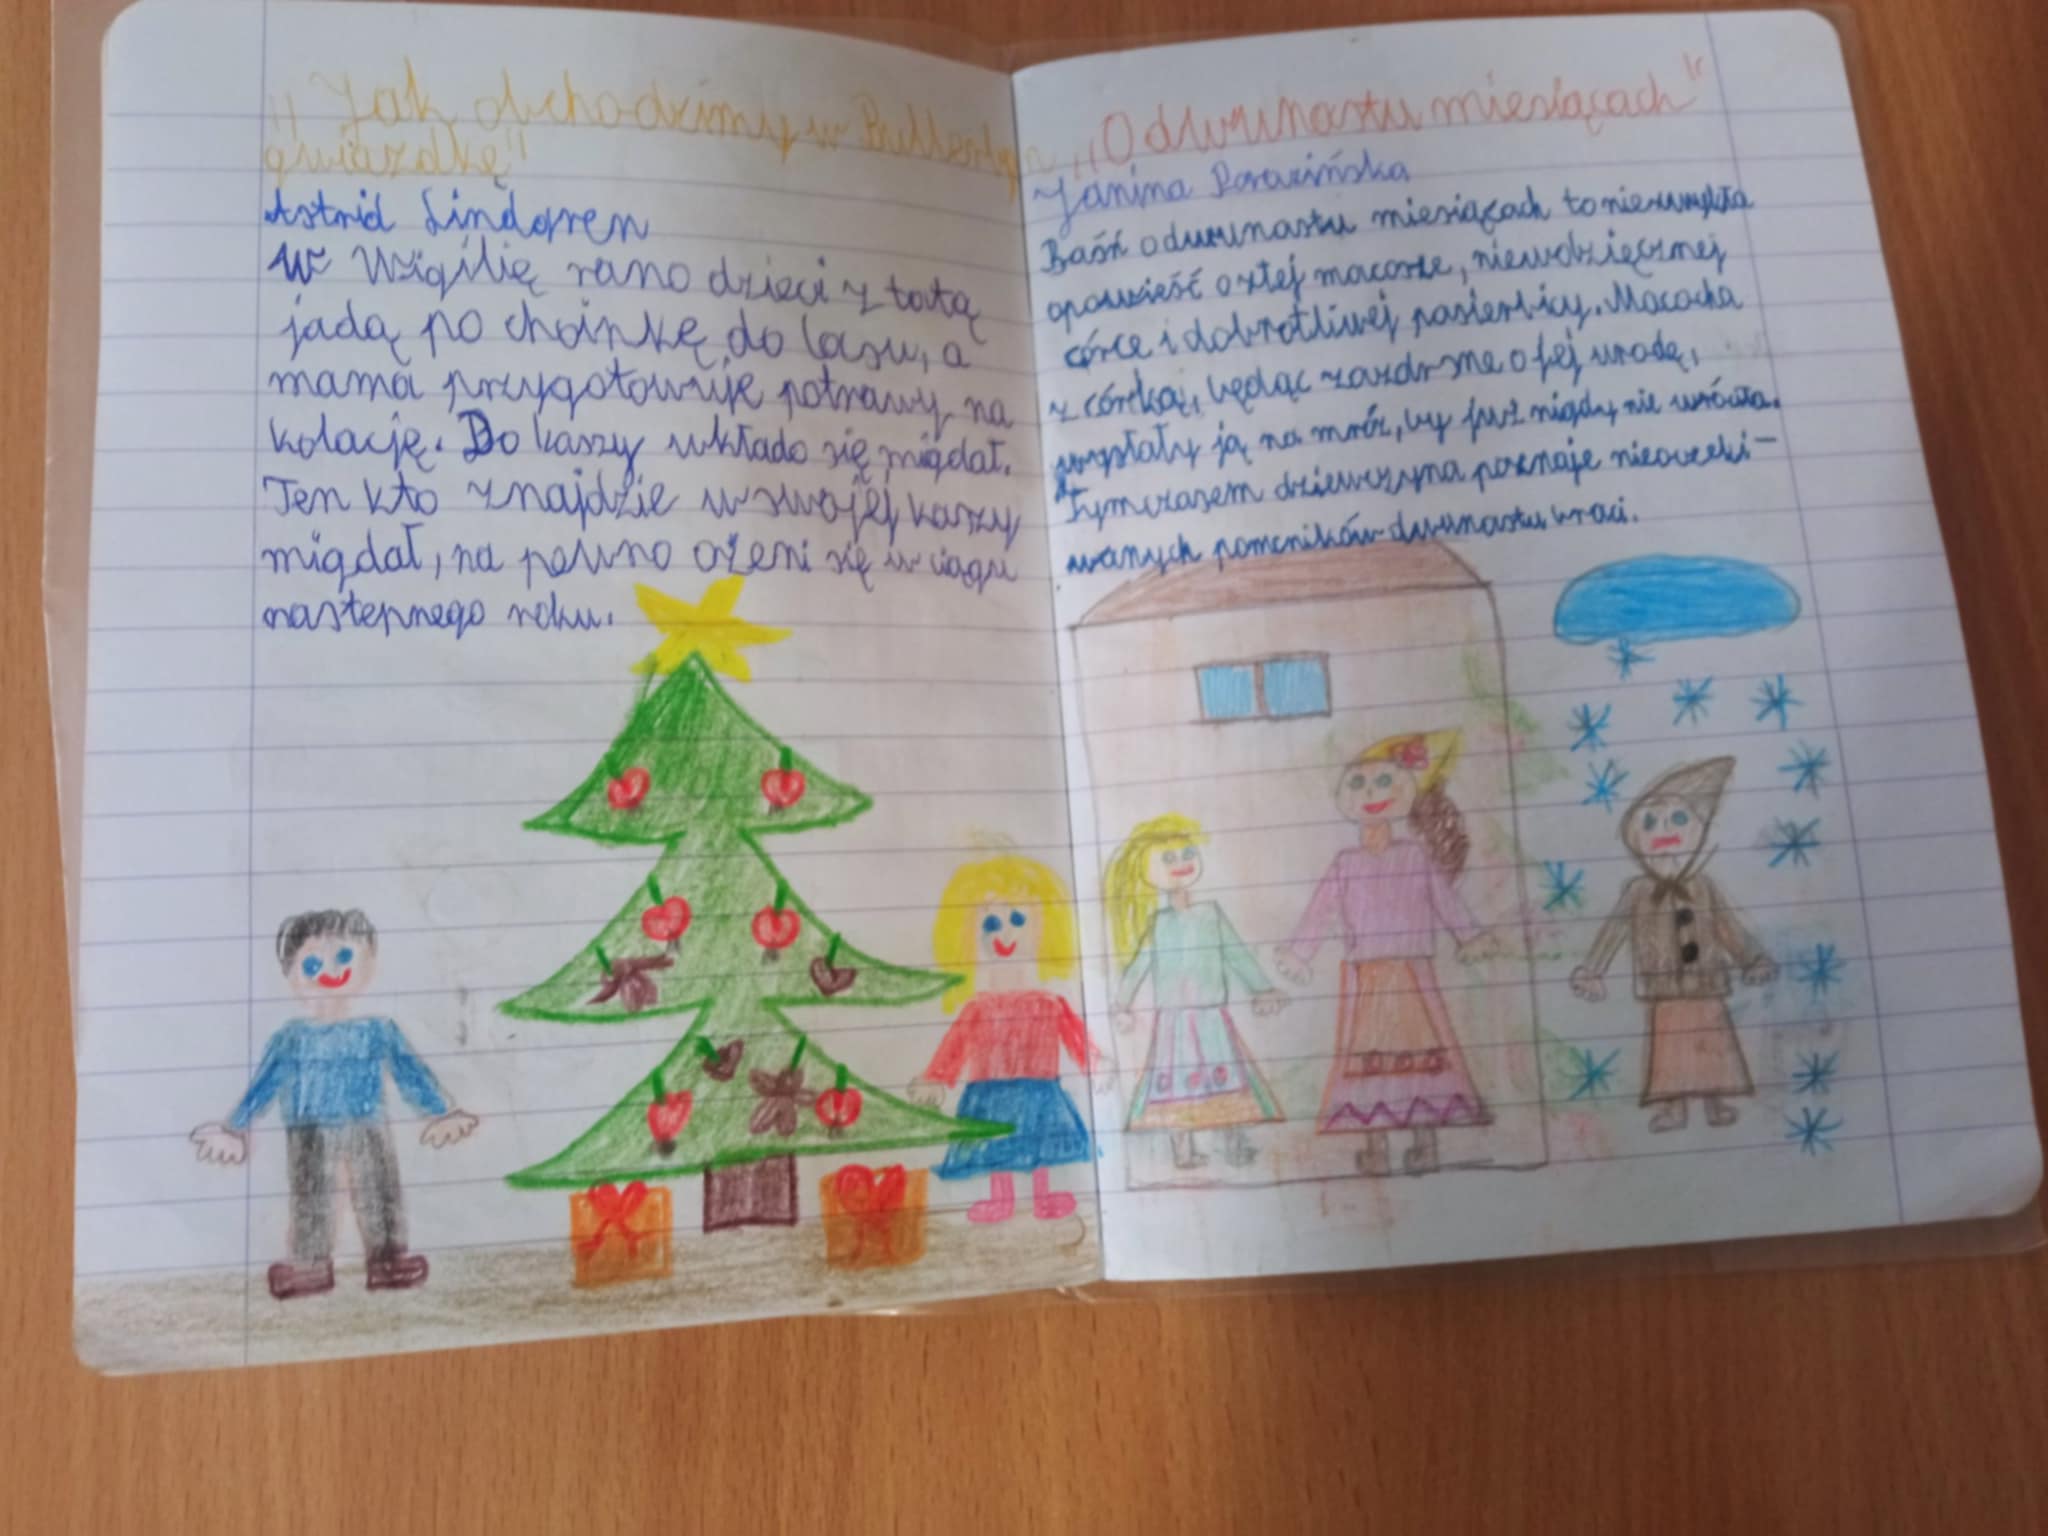 „Jak obchodzimy w Bullerbyn
gwiazdkę"
Astrid Lindgren
W Wigilię rano dzieci z tatą
jadą po choinkę do lasu, a
mama przygotowuje potrawy na
kolację. Do kaszy wkłada się migdał.
Ten kto znajdzie w swojej kaszy
migdał, na pewno ożeni się w ciągu
nastepnego roku.
„O dwunastu miesiącach"
Janina Porazińska
Baśń o dwunastu miesiącach to niezwykła
opowieść o złej macosze, niewdzięcznej
córce i dobrotliwej pasierbicy. Macocha
z córką, będąc zazdrsne o jej urodę,
wysłały ją na mróz, by już nigdy nie wróciła.
Tymczasem dziewczyna poznaje nieoczeki-
wanych pomcników dwunastu braci.